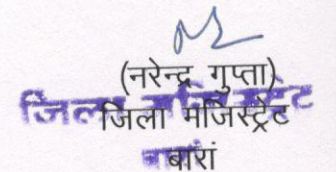 (नरेन्द्र गुप्ता)
जिला मजिस्ट्रेट
जिला मजिस्ट्रेट
बारां
बारां